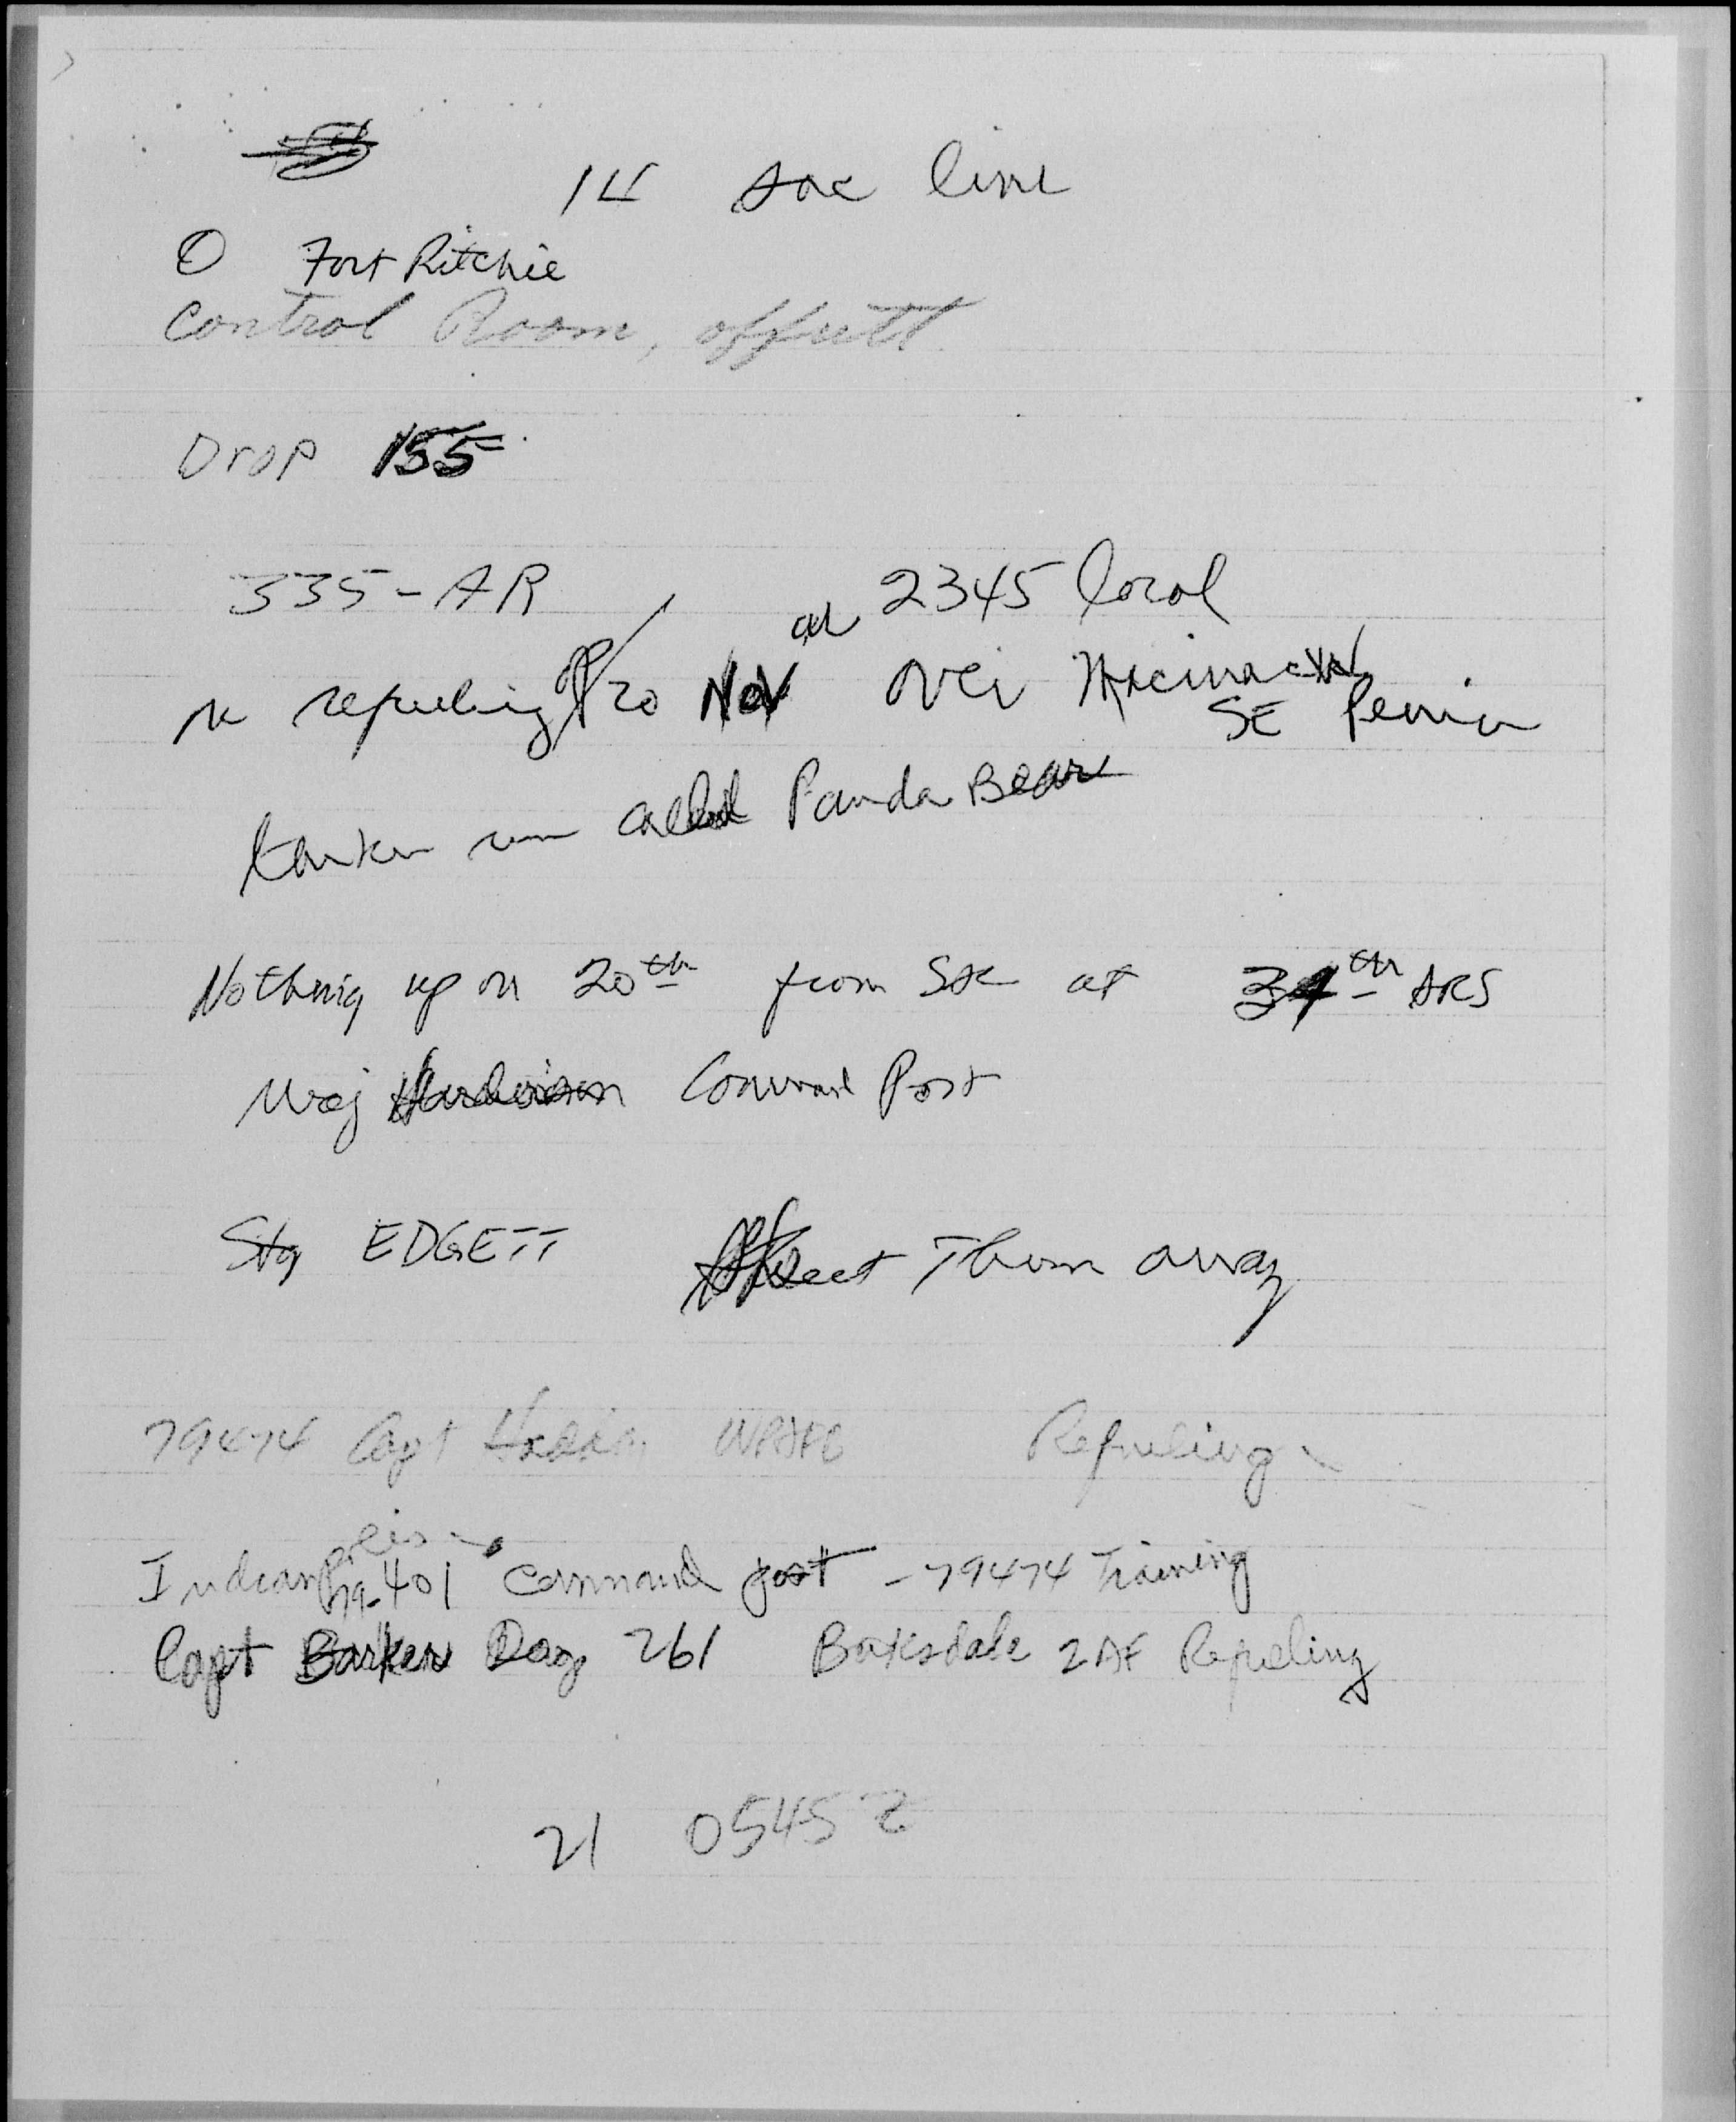 14 SAC line
O Fort Ritchie
Control Room, offutt
Drop 155
335-AR
at 2345 local
refueling 20 Nov over
SE
tanker run called Panda Bear
Nothing up on 20th from SAC at 34th ARS
Maj Command Post
Stg EDGETT Threw away
79474 Capt WPAFB Refueling
Indianapolis
79-401 Command post - 79474 Training
Capt Barker Dog 261 Barksdale 2AF Refueling
21 0545 Z